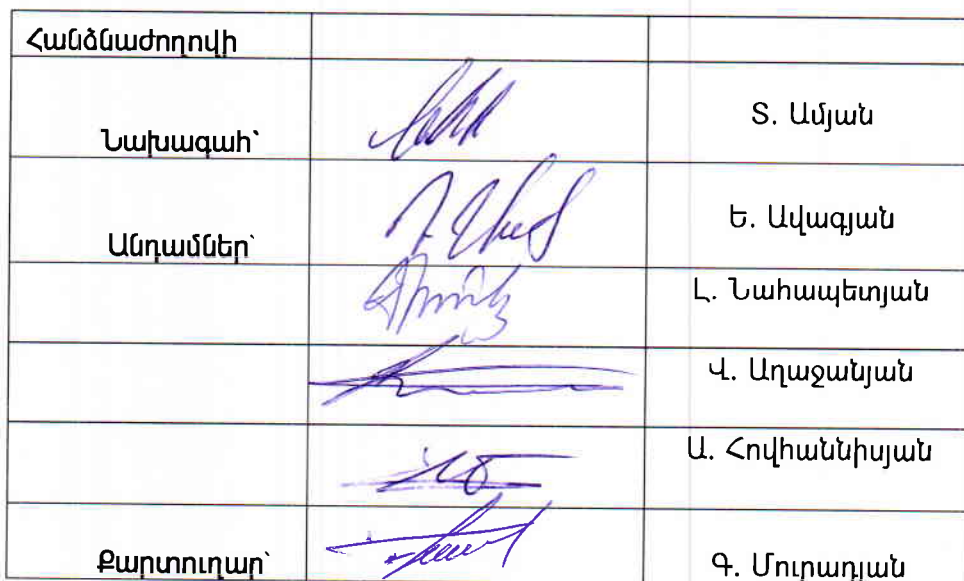 Հանձնաժողովի
Նախագահ՝ Տ. Ամյան
Անդամներ՝ Ե. Ավագյան
Լ. Նահապետյան
Վ. Աղաջանյան
Ա. Հովհաննիսյան
Քարտուղար՝ Գ. Մուրադյան